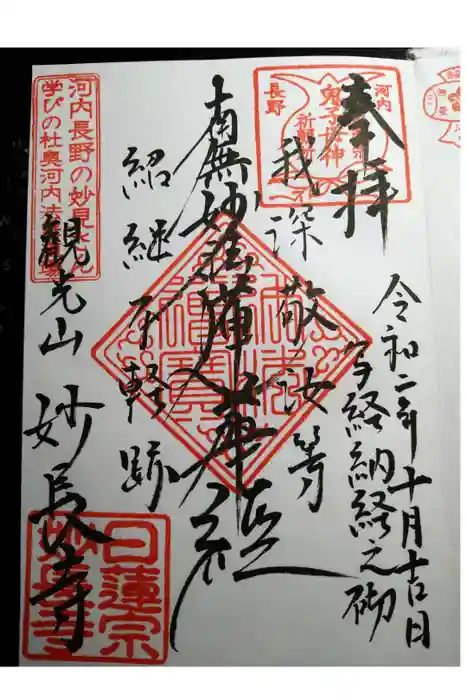 奉拝
令和二年十月吉日
写経納経之砌
河内
長野
鬼子母神
我深敬汝等
南無妙法蓮華経
紹継不軽跡
河内長野の妙見さん
学びの杜奥河内法
観光山
妙長寺
日蓮宗
妙長寺